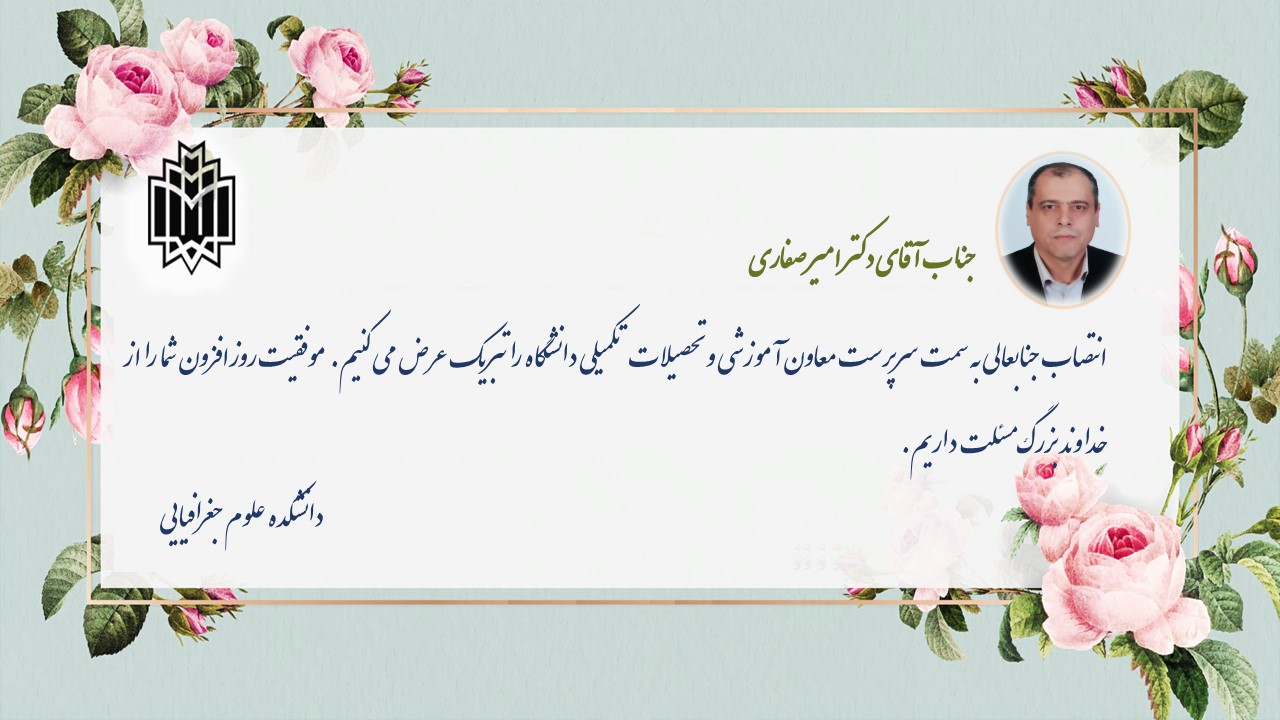 جناب آقای دکتر امیر صفاری
انتصاب جنابعالی به سمت سرپرست معاون آموزشی و تحصیلات تکمیلی دانشگاه را تبریک عرض می کنیم . موفقیت روز افزون شما را از
خداوند بزرگ مسئلت داریم .
دانشکده علوم جغرافیایی